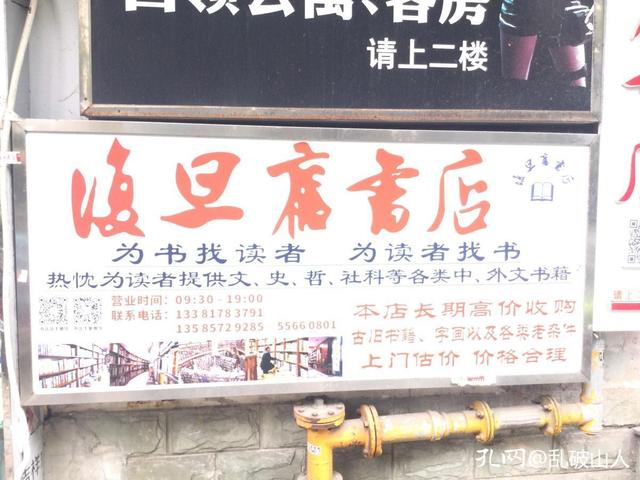 白领公寓、客房
请上二楼
復旦舊書店
復旦舊書店
为书找读者 为读者找书
热忱为读者提供文、史、哲、社科等各类中、外文书籍
营业时间：09:30 - 19:00
联系电话：13381783791
13585729285 55660801
本店长期高价收购
古旧书籍、字画以及各类老杂件
上门估价 价格合理
孔网@乱破山人